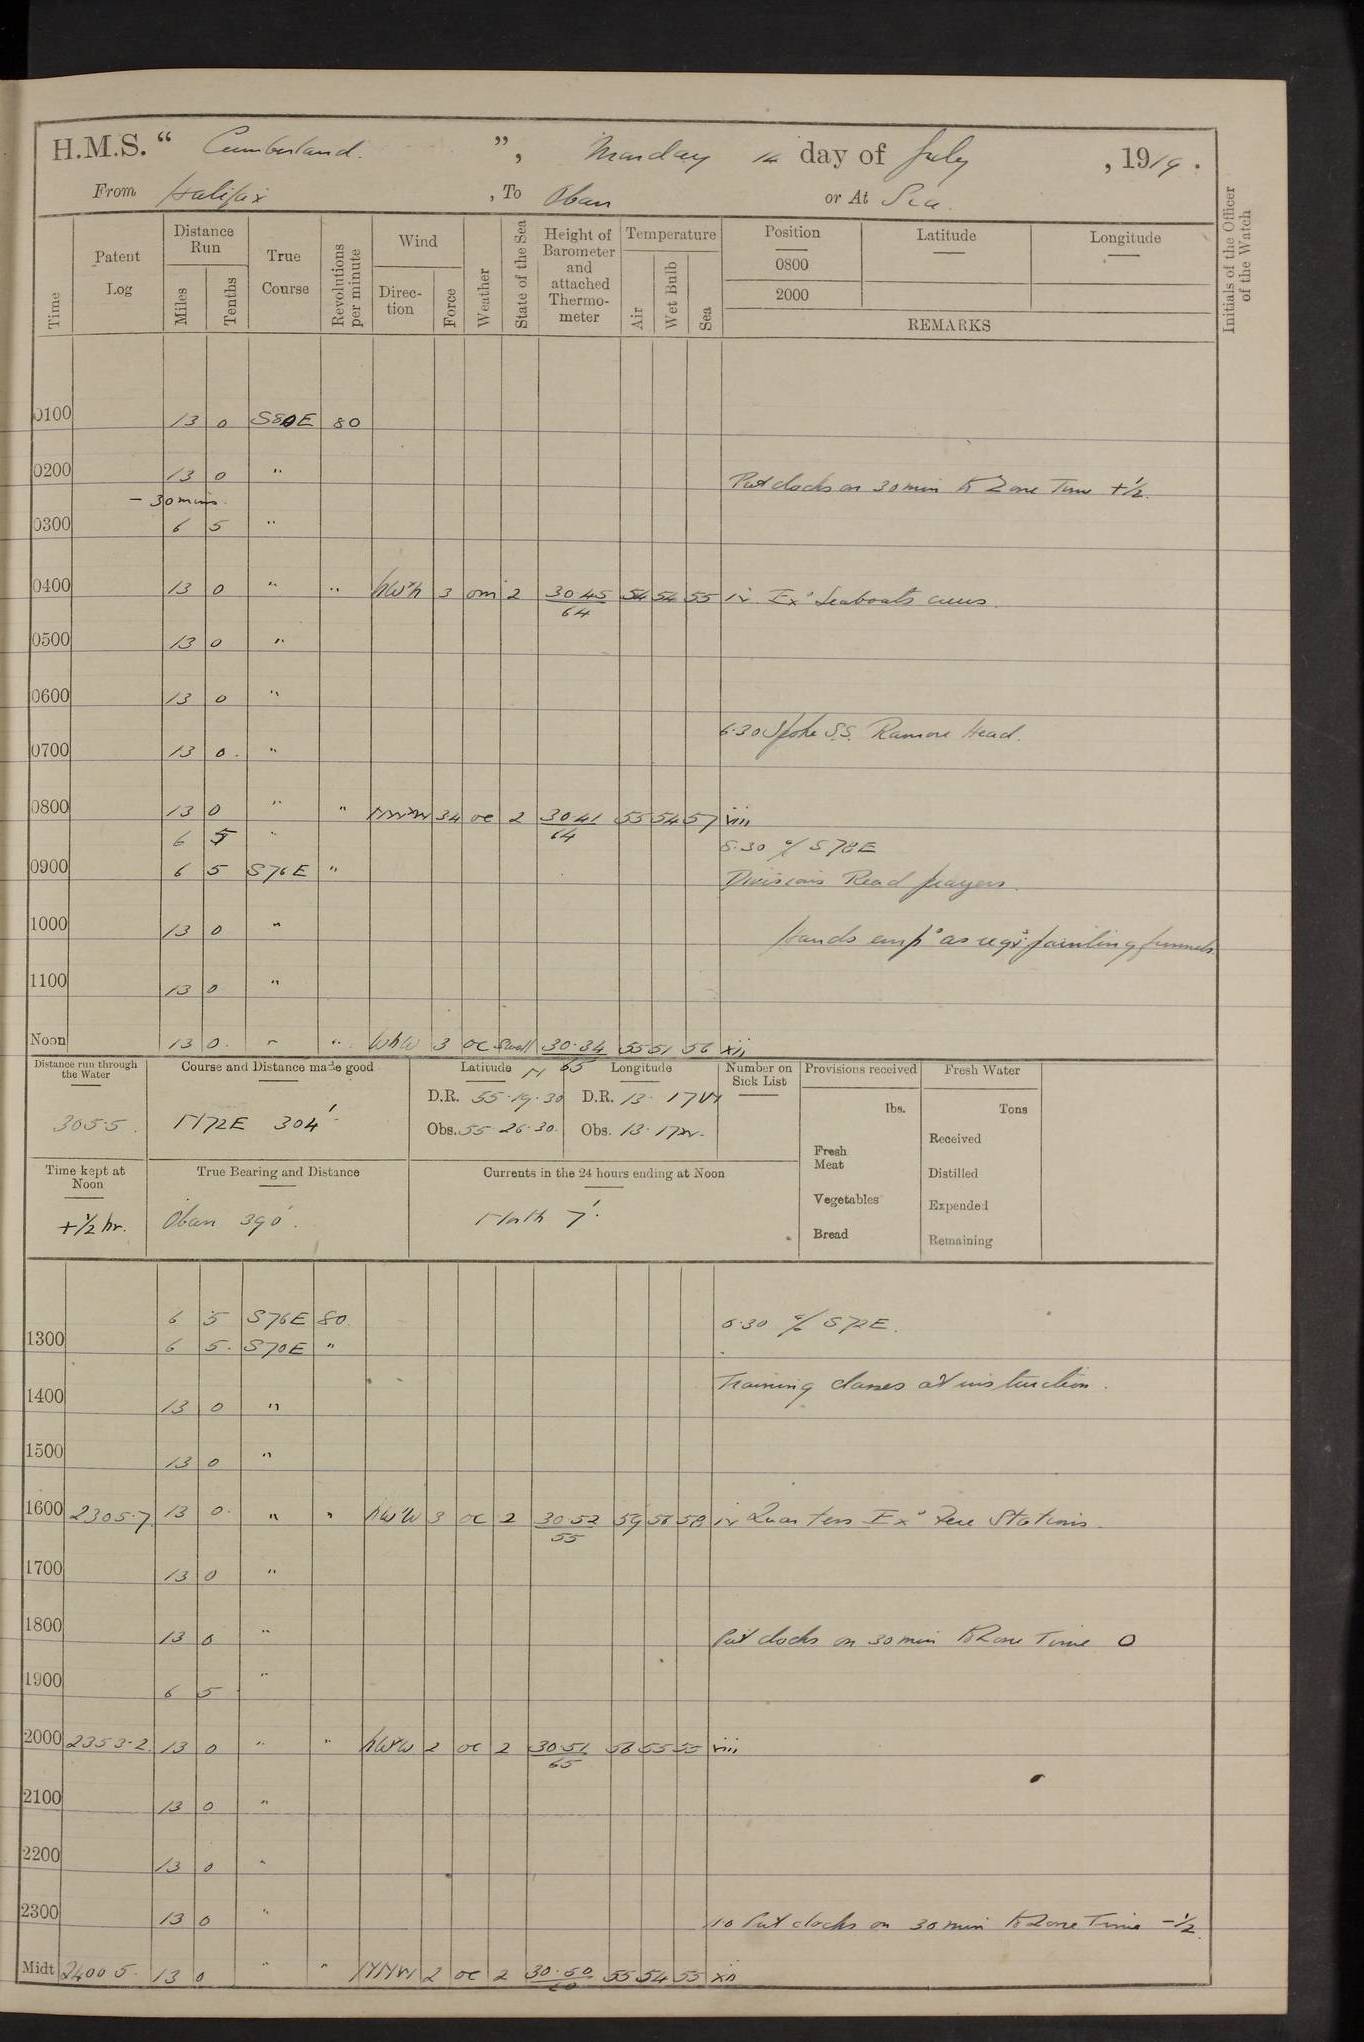 H.M.S. “ Cumberland. ”, Monday 14 day of July , 1919.
From Halifax , To Oban or At Sea.
Time
Patent Log
Distance Run
Miles
Tenths
True Course
Revolutions per minute
Wind
Direction
Force
Weather
State of the Sea
Height of Barometer and attached Thermometer
Temperature
Air
Wet Bulb
Sea
Position
0800
2000
Latitude
Longitude
REMARKS
Initials of the Officer of the Watch
0100 13 0 S80E 80
0200 13 0 " Put clocks on 30 min to Zone Time +½.
- 30 mins.
0300 6 5 "
0400 13 0 " " 3 om 2 30.45 54 54 55 iv. Ex⁠d Seaboats crews.
64
0500 13 0 "
0600 13 0 "
6.30 Spoke S.S. Ramore Head.
0700 13 0. "
0800 13 0 " " 34 oc 2 30.41 55 54 57 viii
64
6 5 " 8.30 a/c S78E
0900 6 5 S76E " Divisions Read prayers.
1000 13 0 " Hands emp⁠d as req⁠d painting funnels.
1100 13 0 "
Noon 13 0. " " WNW 3 oc Swell 30.34 55 51 56 xii
65
Distance run through the Water
305.5.
Course and Distance made good
N72E 304'
Latitude N
D.R. 55.19.30
Obs. 55.26.30.
Longitude
D.R. 13. 17W
Obs. 13. 17W.
Number on Sick List
Provisions received
lbs.
Fresh Meat
Vegetables
Bread
Fresh Water
Tons
Received
Distilled
Expended
Remaining
Time kept at Noon
+½ hr.
True Bearing and Distance
Oban 390'.
Currents in the 24 hours ending at Noon
North 7'.
6 5 S76E 80. 0.30 a/c S72E.
1300 6 5. S70E "
Training classes at instruction.
1400 13 0 "
1500 13 0 "
1600 2305.7 13 0. " " NW'W 3 oc 2 30.52 59 58 58 iv Quarters Ex⁠d Fire Stations.
55
1700 13 0 "
1800 13 0 " Put clocks on 30 min to Zone Time 0
1900 6 5 "
2000 2353.2. 13 0 " " NW'W 2 oc 2 30.51 56 55 55 viii
65
2100 13 0 "
2200 13 0 "
2300 13 0 " 10 Put clocks on 30 min to Zone Time -½.
Midt 2400 5. 13 0 " " NNW 2 oc 2 30.50 55 54 55 xii
60